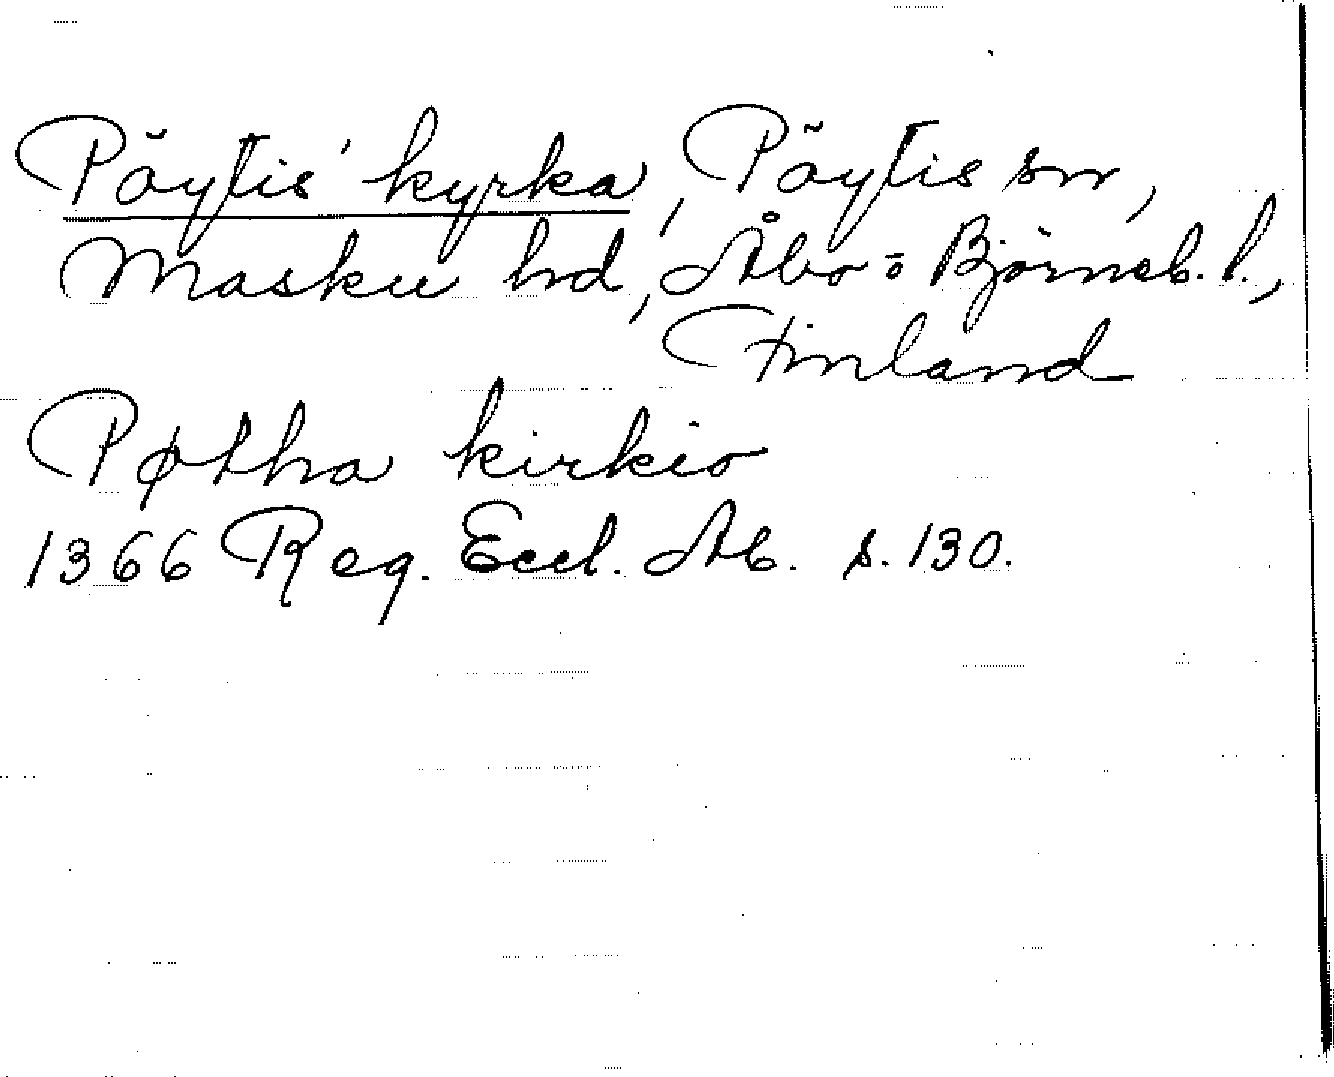 Pöytis kyrka, Pöytis sn,
Masku hd, Åbo=Björneb. l.,
Finland
Pøtha kirkio
1366 Reg. Eccl. Ab. s. 130.